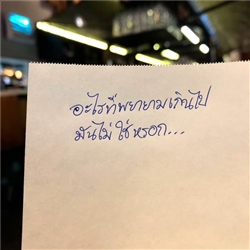 อะไรที่พยายามเกินไป
มันไม่ใช่หรอก...